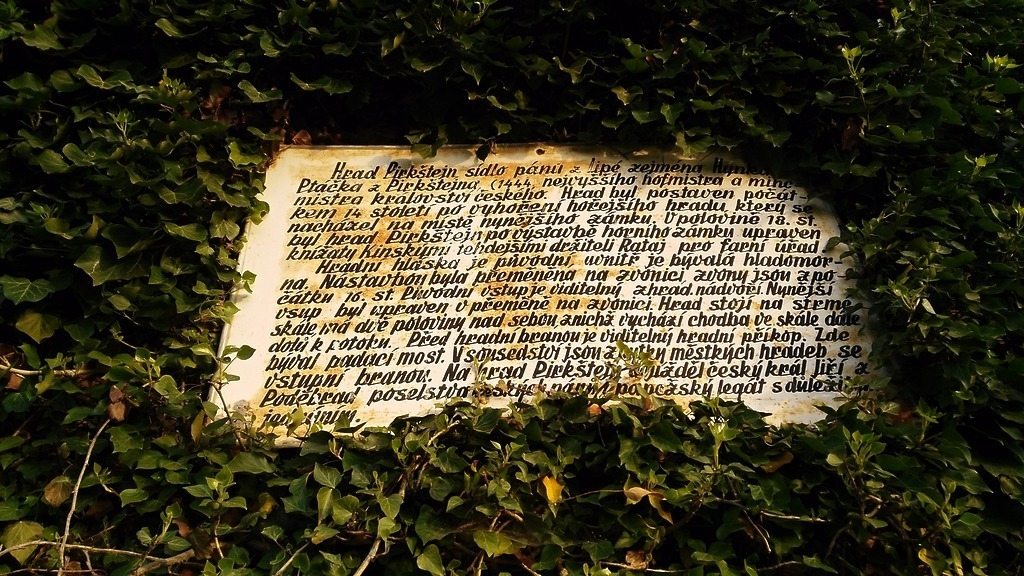 Hrad Pirkštejn sídlo pánů z Lipé zejména
Ptáčka z Pirkštejna, (1444, nejvyššího hofmistra a
mistra království českého. Hrad byl postaven počát-
kem 14 století po vyhoření hořejšího hradu, který se
nacházel na místě nynějšího zámku. V polovině 18. st.
byl hrad Pirkštejn po výstavbě horního zámku upraven
knížaty Kinskými tehdejšími držiteli Rataj pro farní úřad
Hradní hláska je původní, uvnitř je bývalá hladomor-
na. Nástavbou byla přeměněna na zvónici zvony jsou z po-
čátku 16. st. Původní vstup je viditelný z hrad. nádvoří Nynější
vsup byl upraven v přeměně na zvonici. Hrad stojí na strmé
skále má dvě poloviny nad sebou, z nichž vychází chodba ve skále dále
dolů k potoku. Před hradní branou je viditelný hradní příkop. Zde
býval padací most. V sousedství jsou městkých hradeb, se
vstupní branou. Na hrad Pirkštejn český král Jiří z
Poděbrad poselstva